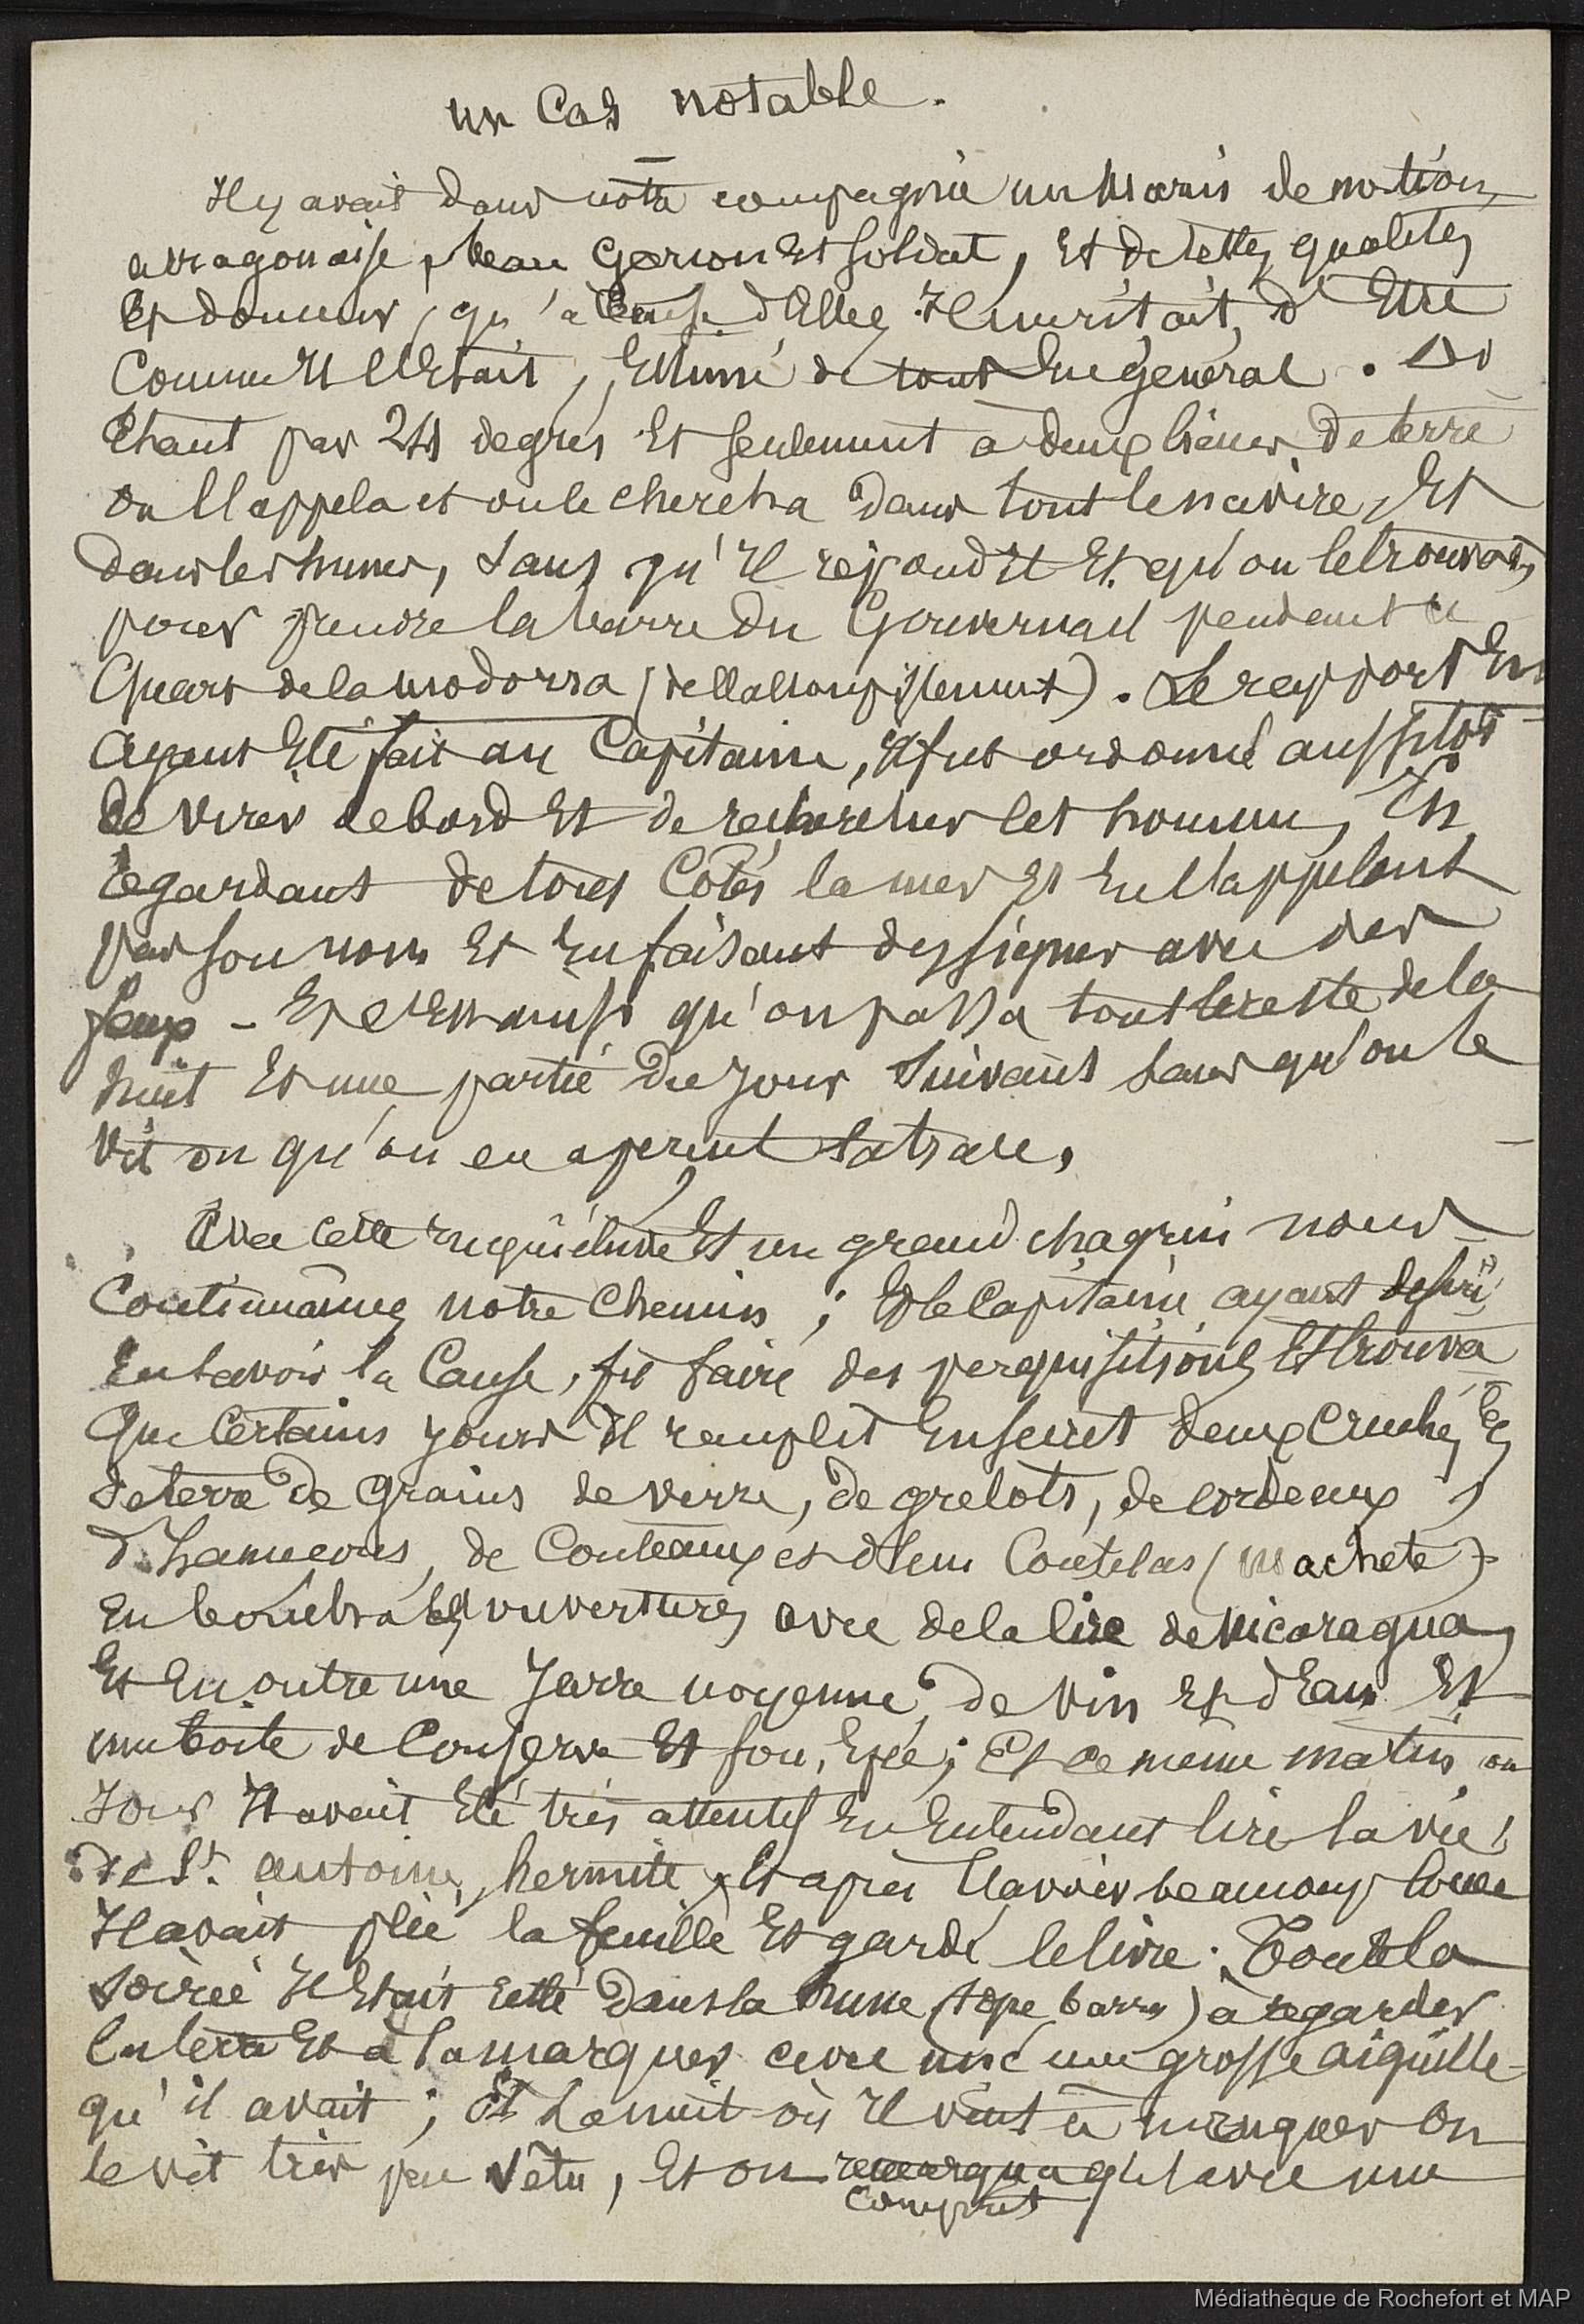 un cas notable.
Il y avait dans notre compagnie un Marin de nation
arragonaise, beau garçon et soldat, et de telles qualités
et douceur, qu'à cause d'elles il méritait d'être
comme il l'était, estimé de tous en général.
Étant par 24 degrés et seulement à deux lieues de terre
on l'appela et on le chercha dans tout le navire, et
dans les hunes, sans qu'il répondit et qu'on le trouvat,
pour prendre la barre du Gouvernail pendant ce
Quart de la modorra (de l'assoupissement). Le rapport en
ayant été fait au Capitaine, il fut ordonné aussitôt
de virer de bord et de rechercher cet homme, en
regardant de tous cotés la mer et en l'appelant
par son nom et en faisant des signes avec des
feux - et c'est ainsi qu'on passa tout le reste de la
nuit et une partie du jour suivant sans qu'on le
vit ou qu'on en aperçut la trace.
Avec cette inquiétude et un grand chagrin nous
continuâmes notre chemin ; et le Capitaine ayant désiré
en savoir la cause, fit faire des perquisitions et trouva
que certains jours il remplit en secret deux cruches
de terre de grains de verre, de grelots, de cordeaux,
d'hameçons, de couteaux et d'un coutelas (machete)
en boucha les ouvertures avec de la cire de Nicaragua,
et en outre une jarre moyenne de vin et d'eau et
une boite de conserve et son épée ; et ce même matin ou
jour il avait été très attentif en entendant lire la vie
de St. Antoine, hermite, et après l'avoir beaucoup louée
il avait plié la feuille et gardé le livre. Toute la
soirée il était resté dans la hune à regarder
la terre et à la marquer avec une grosse aiguille
qu'il avait ; et la nuit où il vint à manquer on
le vit très peu vêtu, et on remarqua qu'avec une
comprit
Médiathèque de Rochefort et MAP